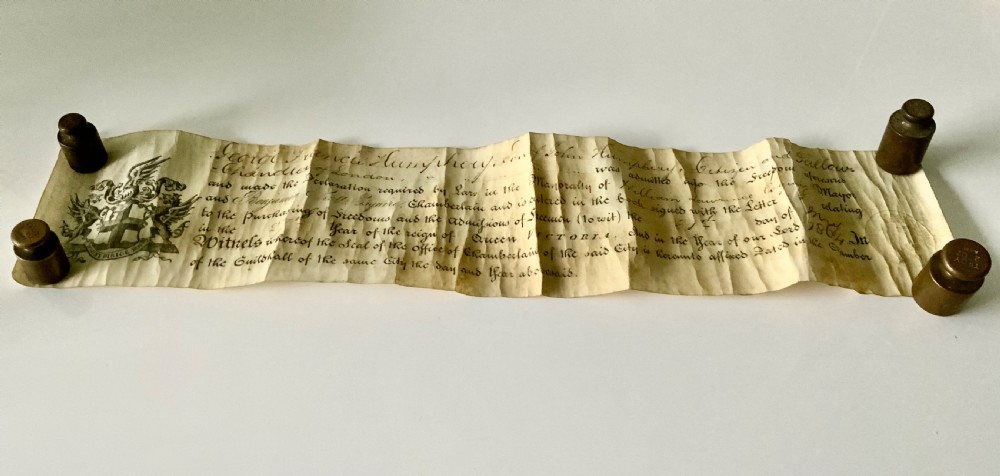 George Francis Humphrey, Son of John Humphrey, Citizen and Tallow
Chandler of London, was admitted into the Freedom aforesaid
and made the Declaration required by Law in the Mayoralty of Mayor
and Benjamin Scott Esquire Chamberlain and is entered in the Book signed with the Letter relating
to the Purchasing of Freedoms and the Admission of Freemen (to wit) the day of
in the Year of the reign of Queen VICTORIA, And in the Year of our Lord 186 In
Witness whereof the Seal of the Office of Chamberlain of the said City is hereunto affixed Dated in the Chamber
of the Guildhall of the same City the day and Year abovesaid.